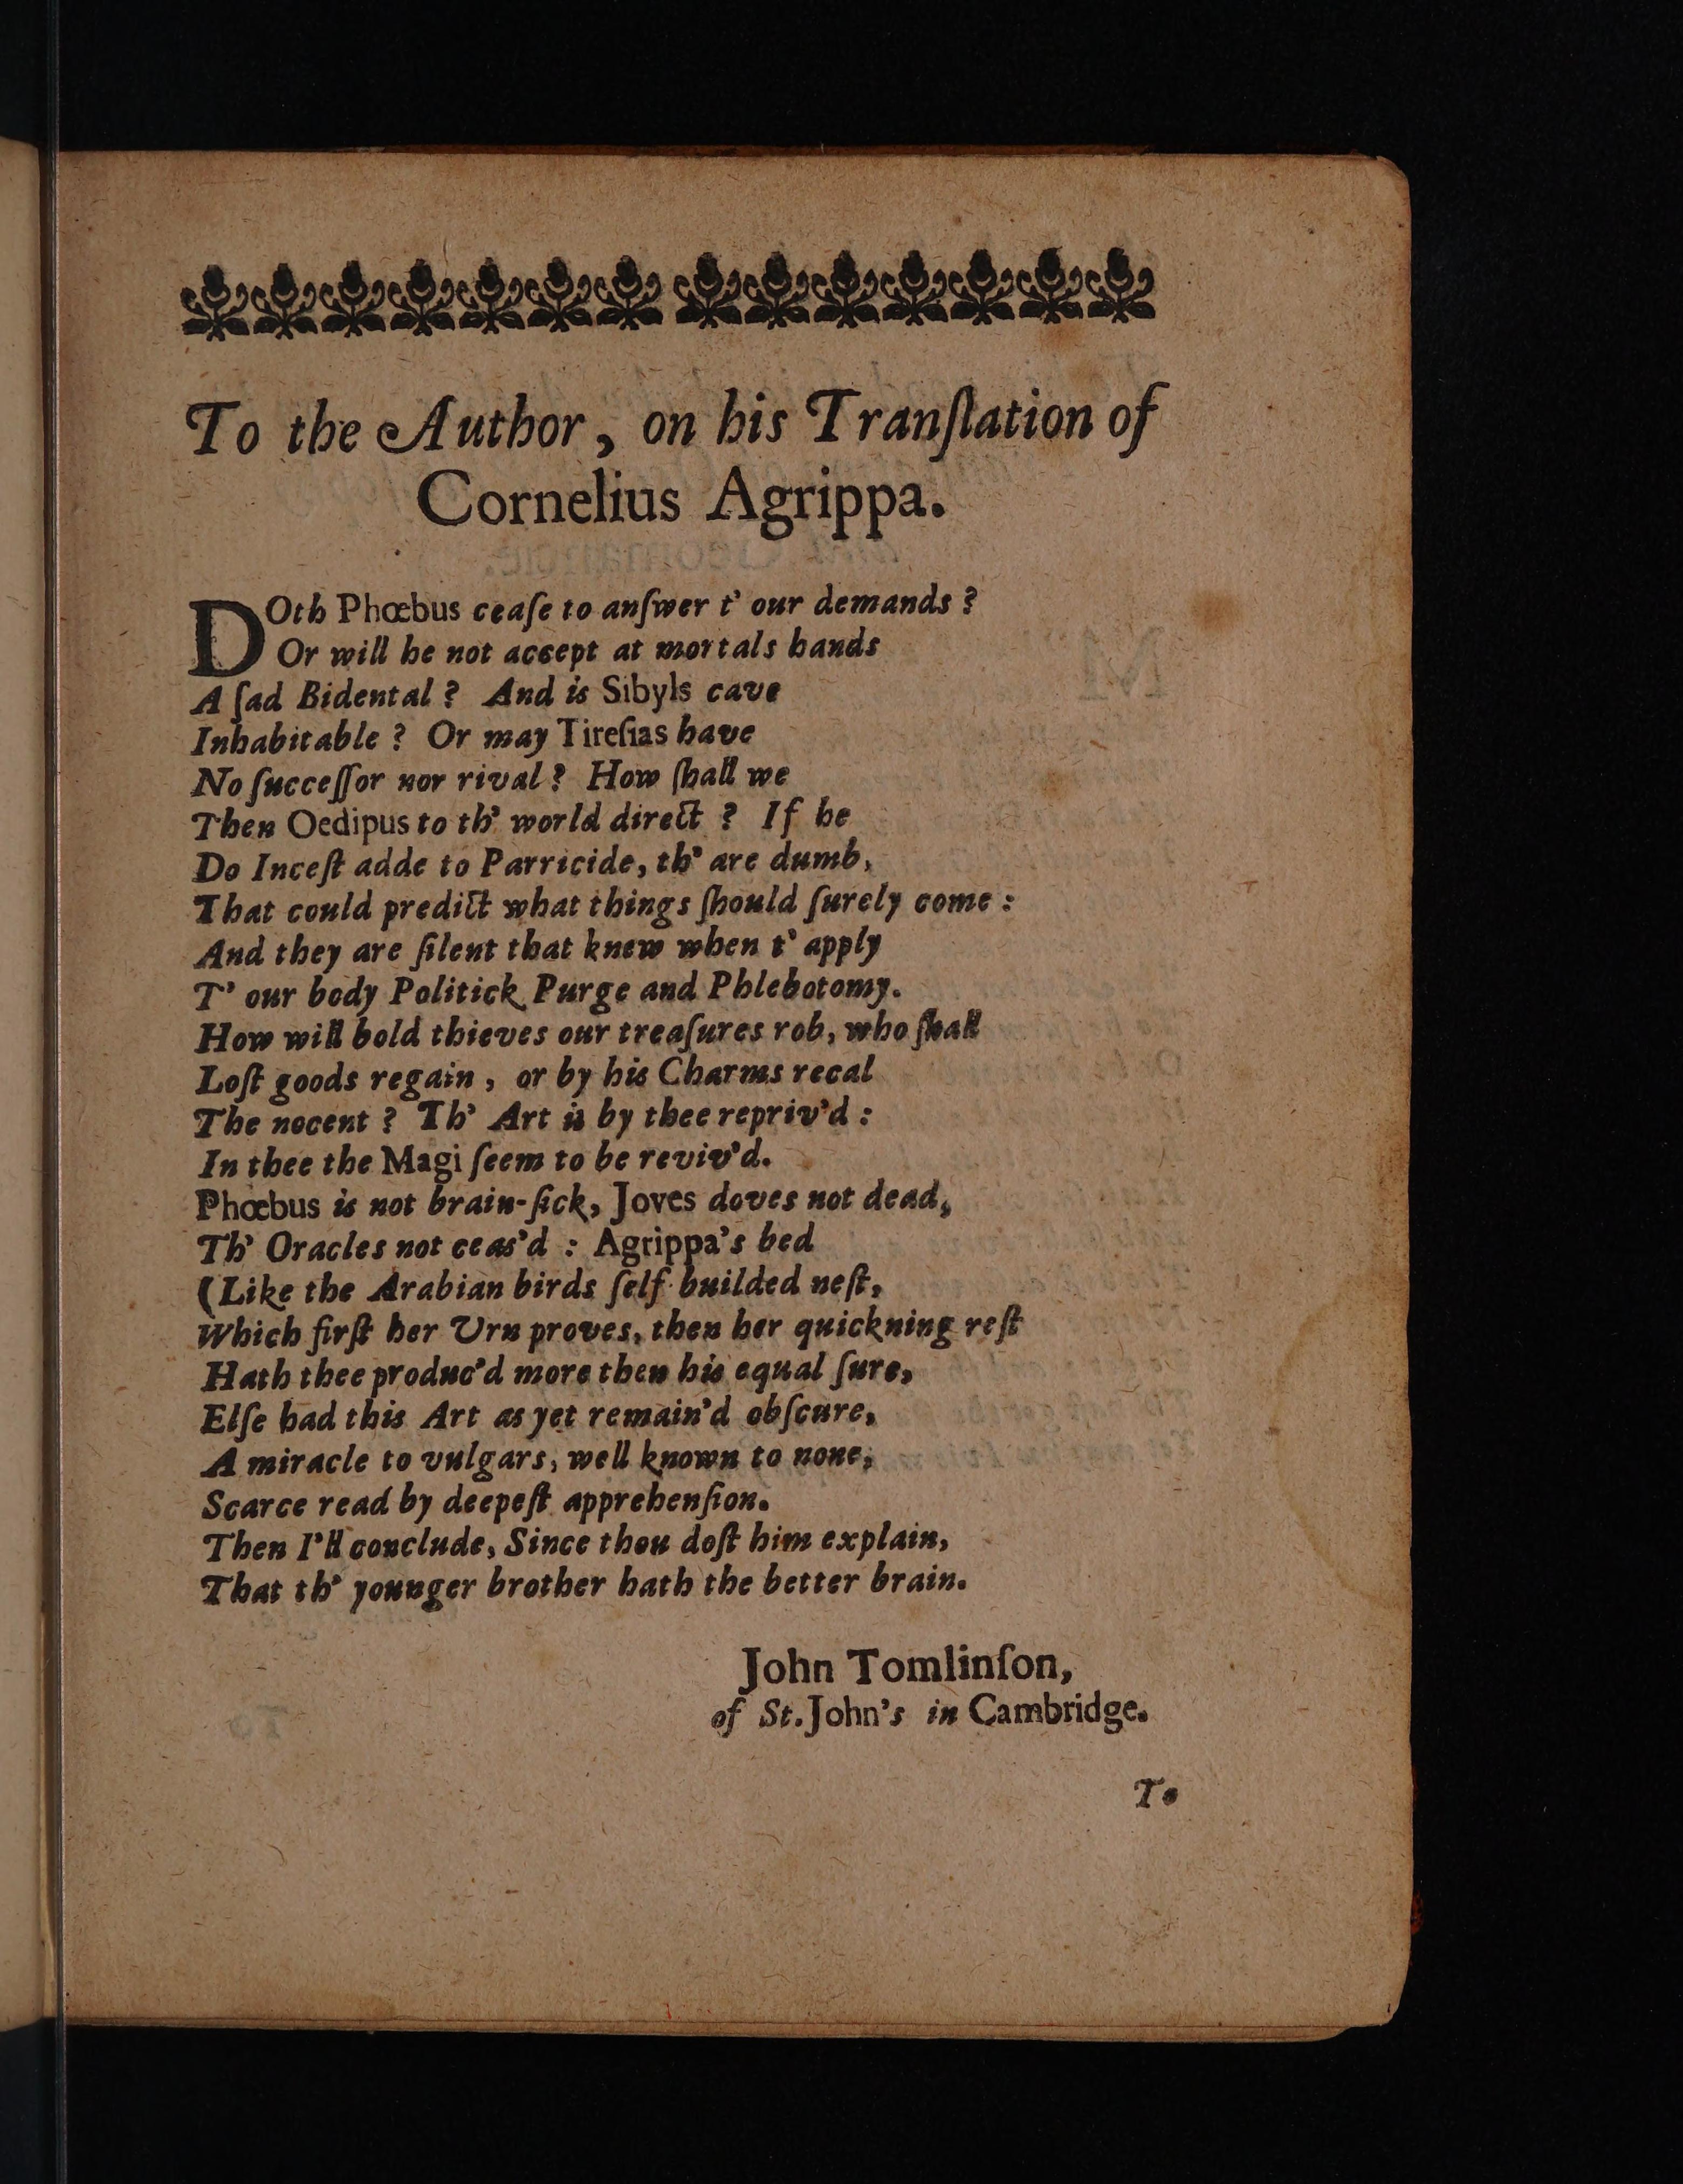 To the Author, on his Tranſlation of
Cornelius Agrippa.
DOth Phœbus ceaſe to anſwer t' our demands?
Or will he not accept at mortals hands
A ſad Bidental? And is Sibyls cave
Inhabitable? Or may Tireſias have
No ſucceſſor nor rival? How ſhall we
Then Oedipus to th' world direct? If he
Do Inceſt adde to Parricide, th' are dumb,
That could predict what things ſhould ſurely come:
And they are ſilent that knew when t' apply
T' our body Politick Purge and Phlebotomy.
How will bold thieves our treaſures rob, who ſhall
Loſt goods regain, or by his Charms recal
The nocent? Th' Art is by thee repriv'd:
In thee the Magi ſeem to be reviv'd.
Phœbus is not brain-ſick, Joves doves not dead,
Th' Oracles not ceas'd: Agrippa's bed
(Like the Arabian birds ſelf-builded neſt,
Which firſt her Urn proves, then her quickning reſt
Hath thee produc'd more then his equal ſure,
Elſe had this Art as yet remain'd obſcure,
A miracle to vulgars, well known to none,
Scarce read by deepeſt apprehenſion.
Then I'll conclude, Since thou doſt him explain,
That th' younger brother hath the better brain.
John Tomlinſon,
of St. John's in Cambridge.
To